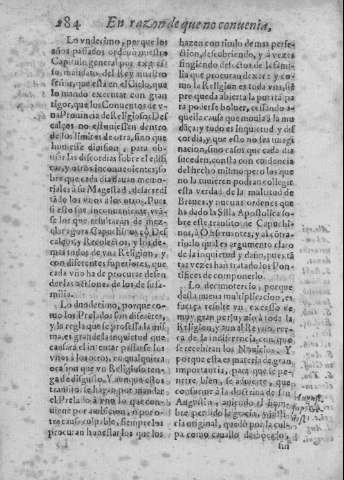 284 En razon de que no conuenia,
Lo vndecimo, porque los
años passados ordenò nuestro
Capitulo general por expresso
mandato del Rey nuestro
señor, que està en el Cielo, que
lo mando executar con gran
rigor, que los Conuentos de vna
Prouincia de Religiosos Descalços
no estuuiessen dentro
de los limites de otra, sino que
huuiesse diuision, para obuiar
las discordias sobre el edificar,
y otros inconuenientes, sobre
que cada dia dauan memoriales
à su Magestad, desacreditādo
los vnos a los otros. Pues
si esto fue inconueniente, veāse
los que resultaràn de mezclar
agora Capuchinos, cō Descalços,
y Recoletos, y los demas
todos de vna Religion, y
con diferentes superiores, que
cada vno ha de procurar defender
las acciones de los de su familia.
Lo duodecimo, porque como
los Prelados son diferētes,
y la regla que se professa la misma,
es grande la inquietud que
causarà el intentar passarse los
vnos à los otros, en qualquiera
ocasion que vn Religioso tenga
de disgusto. Y aunque estos
transitos se hagan, por mandar
el Prelado à vno lo que conuiene
por ambicion, ò por otras
causas culpable, siempre los
procuran honestar los que los
hazen con titulo de mas perfeccion,
descubriendo, y à vezes
fingiendo defectos de la familia
que procuran dexar: y como
la Religion es toda vna, siēpre
queda abierta la puerta para
poderse boluer, cessando aquella
causa que mouia à la mudança;
y todo es inquietud, y discordia,
y que esto no sea imaginacion,
sino casos que cada dia
suceden, consta con euidencia
del hecho mismo, pero los que
no la tuuieren podran collegir
esta verdad de la multitud de
Breues, y nueuas ordenes que
ha dado la Silla Apostolica sobre
este transito de Capuchinos,
à Obseruantes, y al contrario,
lo qual es argumento claro
de la inquietud y daño, pues tātas
vezes han tratado los Pontifices
de componerlo.
Lo decimotercio, porque
desta nueua multiplicacion, es
Religion, y aun al Reyno,
de la indiferencia con que
se recebiran los Nouicios. Y
porque esta es materia de gran
importancia, para que se penetre
bien, se aduierte, que
conforme à la doctrina de san
Augustin, auiendo el hombre
perdido la gracia, y justicia
original, quedò por la culpa
como cauallo desbocado,